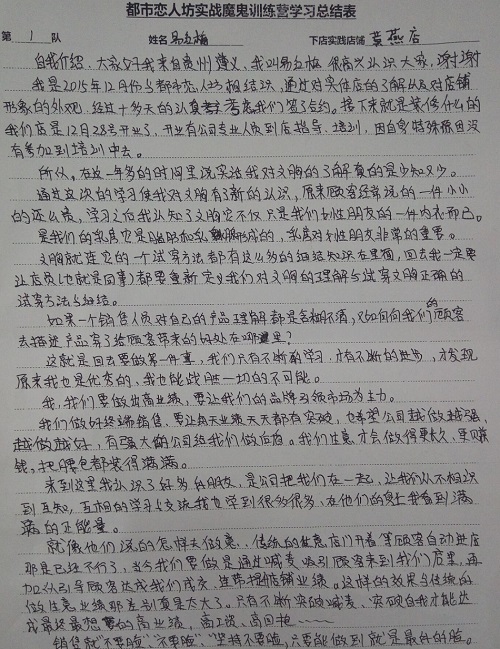 都市恋人坊实战魔鬼训练营学习总结表
第 1 队 姓名 易红梅 下店实践店铺 黄燕店
自我介绍、大家好我来自贵州遵义,我叫易红梅 很高兴认识大家,谢谢
我是2015年12月份与都市恋人坊相结识,通过对实体店的了解以及对店铺
形象的外观,经过十多天的认真考虑我们签了合约。接下来就是装修什么的
我们店是12月28号开业了,开业有公司专业人员到店指导、培训,因自身特殊原因没
有参加到培训中去。
所以,在这一年多的时间里说实话我对文胸的了解真的是少知又少。
通过这次的学习使我对文胸有了新的认识,原来顾客经常说的一件小小
的这么贵,学习之后我认知了文胸它不仅只是我们女性朋友的一件内衣而已。
是我们的乳房它是脂肪和乳腺形成的,乳房对女性朋友非常的重要。
文胸就连它的一个试穿方法都有这么多的细结知识在里面,回去我一定要
让店员(也就是同事)都要重新定义我们对文胸的理解与试穿文胸正确的
试穿方法与细结。
如果一个销售人员对自己的产品理解都是含糊不清,又如何向我们的顾客
去描述产品穿了给顾客带来的好处在哪里?
这就是回去要做的第一件事,我们只有不断的学习,才有不断的进步,才发现
原来我也是优秀的,我也能战胜一切的不可能。
我,我们要做出高业绩,要让我们的品牌占领市场为主力。
我们做好终端销售,要让每天业绩天天都有突破,也希望公司越做越强,
越做越好,有强大的公司给我们做后盾。我们生意才会做得更长久,更赚
钱,把腰包都装得满满。
来到这里我认识了好多的朋友,是公司把我们在一起,让我们从不相识
到互知,互相的学习与交流我也学到很多很多,在他们的身上我看到满
满的正能量。
就像他们说的怎样去做意、传统的生意店门开着等顾客自动进店
那是已经不行了,当今我们要做是通过喊麦吸引顾客来到我们店里,再
加以引导顾客达成我们成交,进而提倍店铺业绩。这样的效果与传统的
做生意业绩那差别真是太大了。只有不断突破喊麦、突破自我才能达
成最终最想要的高业绩,高工资、高回报……
销售就"不要脸、不要脸"、坚持不要脸,只要能做到就是最好的脸。